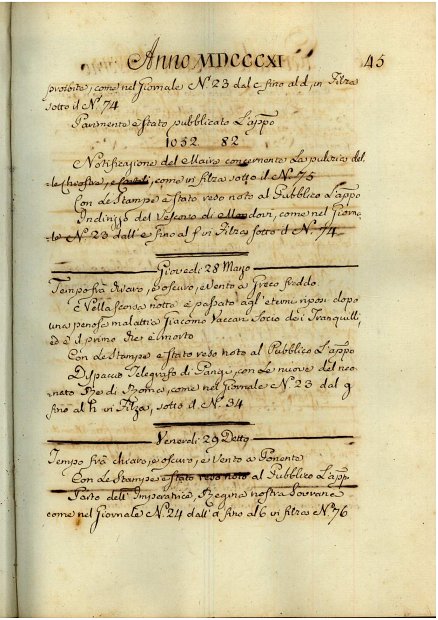 Anno MDCCCXI 45
proibite, come nel Giornale N.° 23 dal c fino al d, in Filza
sotto il N.° 74
Parimente è stato pubblicato l'appo
1052 82
Notificazione del Maire concernente la pulizia del-
le , come in filza sotto il N.° 75
Con le Stampe è stato reso noto al Pubblico l'appo
Indirizzo del Vescovo di Mondovì, come nel Giorna-
le N.° 23 dall'e fino al f in Filza sotto il N.° 74
Giovedì 28 Marzo
Tempo frà chiaro, e oscuro, e vento a Greco freddo
Nella scorsa notte è passato agl'eterni riposi dopo
una penosa malattia Giacomo Vaccari Socio dei Tranquilli,
ed è il primo che è morto
Con le Stampe è stato reso noto al Pubblico l'appo
Dispaccio Telegrafo di Parigi, con le nuove del neo-
nato Re di Roma, come nel Giornale N.° 23 dal g
fino al h in Filza, sotto il N.° 34
Venerdì 29 Detto
Tempo frà chiaro, e oscuro, e Vento a Ponente
Con le Stampe è stato reso noto al Pubblico l'app
Parto dell'Imperatrice, Regina nostra Sovrana
come nel Giornale N.° 24 dall'a fino al b in filza N.° 76